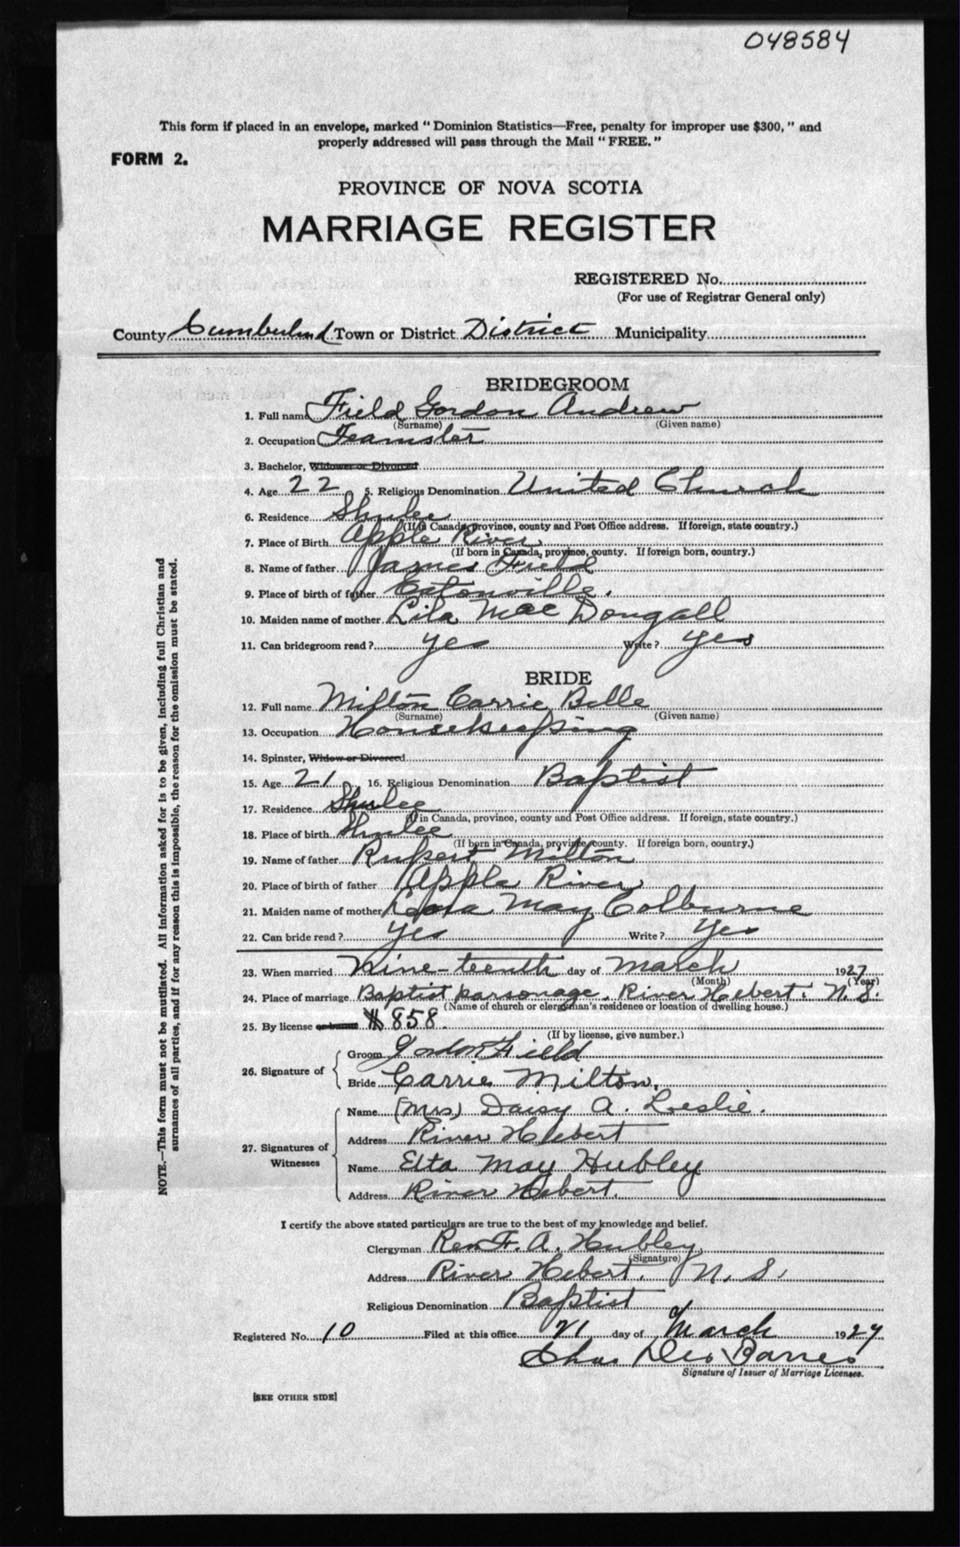 048584
This form if placed in an envelope, marked " Dominion Statistics—Free, penalty for improper use $300, " and
properly addressed will pass through the Mail " FREE. "
FORM 2.
PROVINCE OF NOVA SCOTIA
MARRIAGE REGISTER
REGISTERED No.
(For use of Registrar General only)
County Cumberland Town or District District Municipality
BRIDEGROOM
1. Full name Field Gordon Andrew
(Surname) (Given name)
2. Occupation Teamster
3. Bachelor, Widower or Divorced
4. Age 22 5. Religious Denomination United Church
6. Residence Shulee
(If in Canada, province, county and Post Office address. If foreign, state country.)
7. Place of Birth Apple River
(If born in Canada, province, county. If foreign born, country.)
8. Name of father James Field
9. Place of birth of father Eatonville.
10. Maiden name of mother Lila MacDougall
11. Can bridegroom read? yes Write? yes
BRIDE
12. Full name Milton Carrie Belle
(Surname) (Given name)
13. Occupation Housekeeping
14. Spinster, Widow or Divorced
15. Age 21 16. Religious Denomination Baptist
17. Residence Shulee
(If in Canada, province, county and Post Office address. If foreign, state country.)
18. Place of birth Shulee
(If born in Canada, province, county. If foreign born, country.)
19. Name of father Rupert Milton
20. Place of birth of father Apple River
21. Maiden name of mother May Colburne
22. Can bride read? yes Write? yes
23. When married Nine-teenth day of March 1927
(Month) (Year)
24. Place of marriage Baptist parsonage, River Hebert. N.S.
(Name of church or clergyman's residence or location of dwelling house.)
25. By license or banns # 858.
(If by license, give number.)
26. Signature of
Groom Gordon Field
Bride Carrie Milton.
27. Signatures of Witnesses
Name (Mrs) Daisy A. Leslie.
Address River Hebert
Name Etta May Hubley
Address River Hebert.
I certify the above stated particulars are true to the best of my knowledge and belief.
Clergyman Rev. F. A. Hubley
(Signature)
Address River Hebert, N. S.
Religious Denomination Baptist
Registered No. 10 Filed at this office 21 day of March 1927
Chas Des Barres
Signature of Issuer of Marriage Licenses.
[SEE OTHER SIDE]
NOTE.—This form must not be mutilated. All information asked for is to be given, including full Christian and
surnames of all parties, and if for any reason this is impossible, the reason for the omission must be stated.